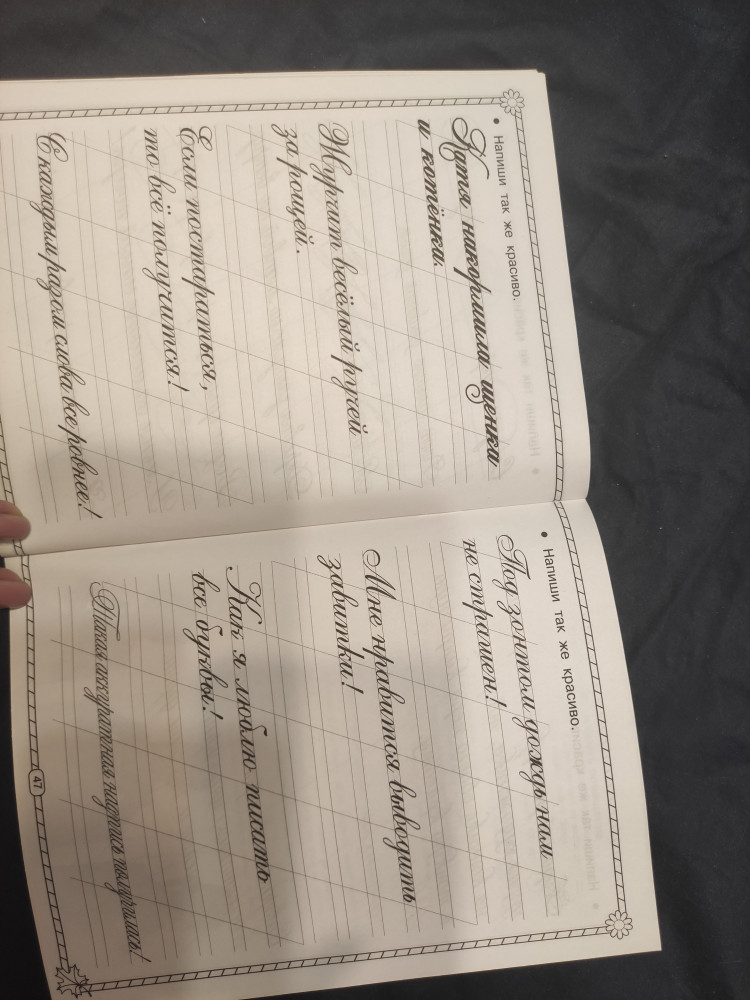 • Напиши так же красиво.
Катя накормила щенка
и котёнка.
Журчит весёлый ручей
за рощей.
Если постараться,
то всё получится!
С каждым разом слова все ровнее!
• Напиши так же красиво.
Под зонтом дождь нам
не страшен!
Мне нравится выводить
завитки!
Как я люблю писать
все буквы!
Такая аккуратная надпись получилась!
47